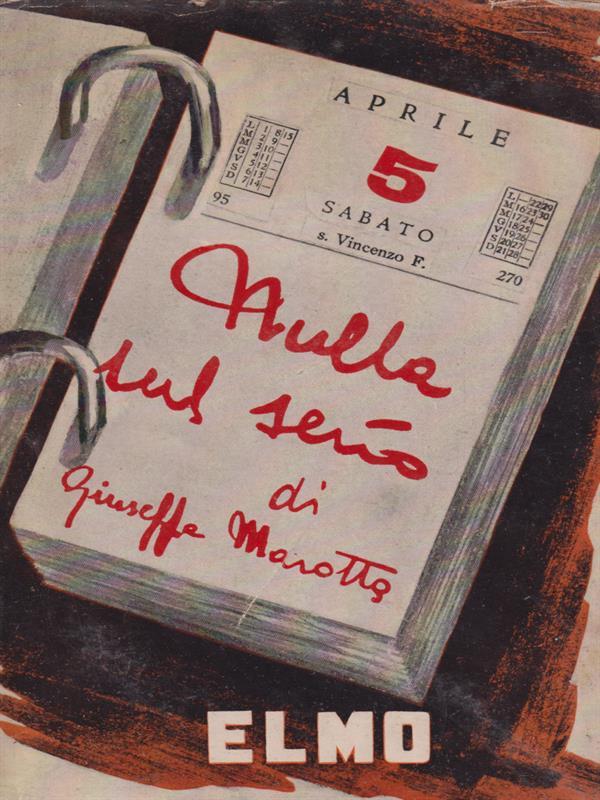 APRILE
5
SABATO
s. Vincenzo F.
L 1 8 15
M 2 9 —
M 3 10 —
G 4 11 —
V 5 12 —
S 6 13 —
D 7 14 —
95
L — 22 29
M 16 23 30
M 17 24 —
G 18 25 —
V 19 26 —
S 20 27 —
D 21 28 —
270
Nulla
sul serio
di
Giuseppe Marotta
ELMO